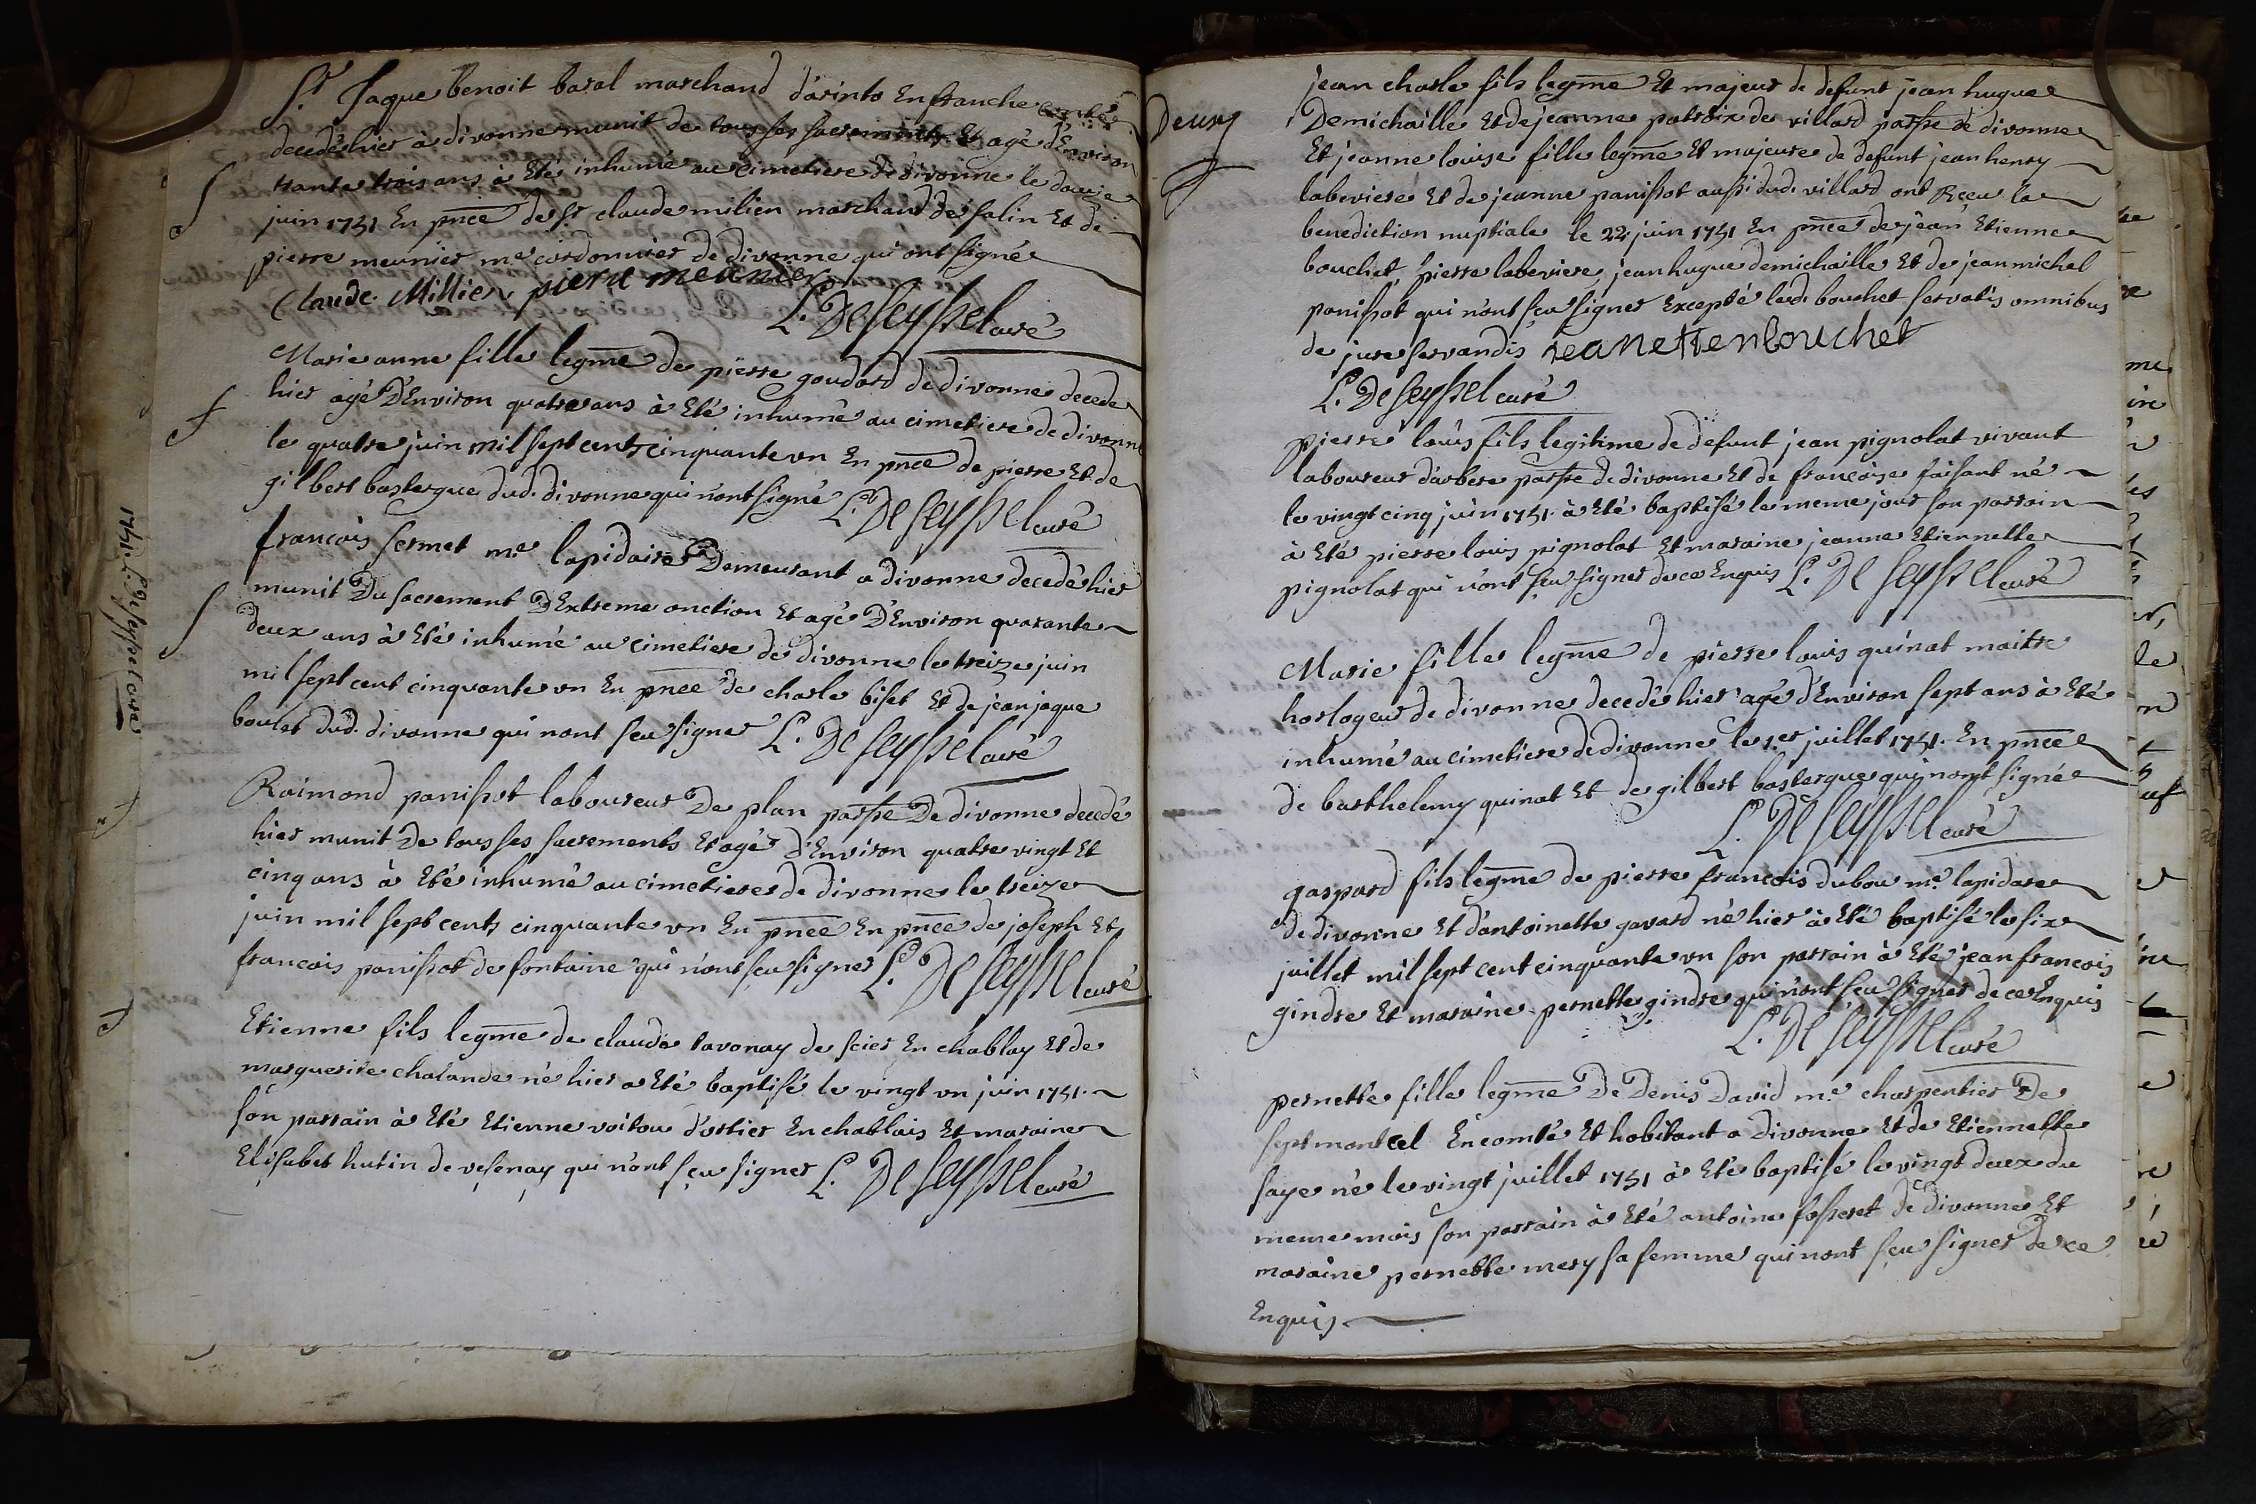 Sr Jaque benoit baral marchand d'arinto En franche comté
decedé hier à divonne munit de tous ses sacrements Et agé d'Environ
trante trois ans à Eté inhumé au cimetiere de divonne le douze
juin 1751 En pnce de sr claude milien marchand de salin Et de
pierre meunier me cordonnier de divonne qui ont signé
Claude Millien pierre meunier
L. De Seyssel curé
Marie anne fille legme de pierre goudard de divonne decede
hier agé D'Environ quatre ans à Eté inhumé au cimetiere de divonne
le quatre juin mil sept cents cinquante un En pnce de pierre Et de
gilbert bastergue dud. divonne qui n'ont signé L. De Seyssel curé
francois sermet me lapidaire Demeurant a divonne decedé hier
munit Du sacrement D'Extreme onction Et agé D'Environ quarante
deux ans à Eté inhumé au cimetiere de divonne le treize juin
mil sept cent cinquante un En pnce de charle biset Et de jean jaque
boulet dud. divonne qui nont sçu signer L. De Seyssel curé
Raimond panissot laboureur De plan parsse De divonne decedé
hier munit De tous ses sacrements Et agé d'Environ quatre vingt Et
cinq ans à Eté inhumé au cimetiere de divonne le treize
juin mil sept cents cinquante un En pnce En pnce de joseph Et
francois panissot de fontaine qui n'ont sçu signer L. De Seyssel curé
Etienne fils legme de claude tavonay de sciez En chablay Et de
marguerite chalande né hier a Eté baptisé le vingt un juin 1751.
son parrain à Eté Etienne voitou d'ortier En chablais Et maraine
Elisabet hutin de vesenay qui n'ont sçu signer L. De Seyssel curé
1751. L. De Seyssel curé
Deux
jean charle fils legme Et majeur de defunt jean hugue
Demichaille Et de jeanne patroix de villard parsse de divonne
Et jeanne louise fille legme Et majeure de defunt jean henry
laberiere Et de jeanne panissot aussi dud. villard ont Reçeu la
benediction nuptiale le 22 juin 1751 En pnce de jean Etienne
bouchet pierre laberiere, jean hugue demichaille Et de jean michel
panissot qui n'ont sçu signer Excepté led. bouchet servatis omnibus
de jure servandis jean ettien bouchet
L. De Seyssel curé
pierre louis fils legitime de defunt jean pignolat vivant
laboureur d'arbere parsse de divonne Et de françoise faisant né
le vingt cinq juin 1751. à Eté baptisé le meme jour son parrain
à Eté pierre louis pignolat Et maraine jeanne Etiennette
pignolat qui n'ont sçu signer de ce Enquis L. De Seyssel curé
Marie fille legme de pierre louis quinat maitre
horlogeur de divonne decedé hier agé d'Environ sept ans à Eté
inhumé au cimetiere de divonne le 1er juillet 1751. En pnce
de barthelemy quinat Et de gilbert bastergue qui nont signé
L. De Seyssel curé
gaspard fils legme de pierre francois dubou me lapidaire
de divonne Et d'antoinette gavard né hier à Eté baptisé le six
juillet mil sept cent cinquante un son parrain à Eté jean francois
gindre Et maraine pernette gindre qui n'ont sçu signer de ce Enquis
L. De Seyssel curé
pernette fille legme De Denis David me charpentier De
sept montcel En comté Et habitant a Divonne Et de Etiennette
faye né le vingt juillet 1751 à Eté baptisé le vingt deux du
meme mois son parrain à Eté antoine fosseret de divonne Et
maraine pernette mery sa femme qui nont sçu signer de ce
Enquis